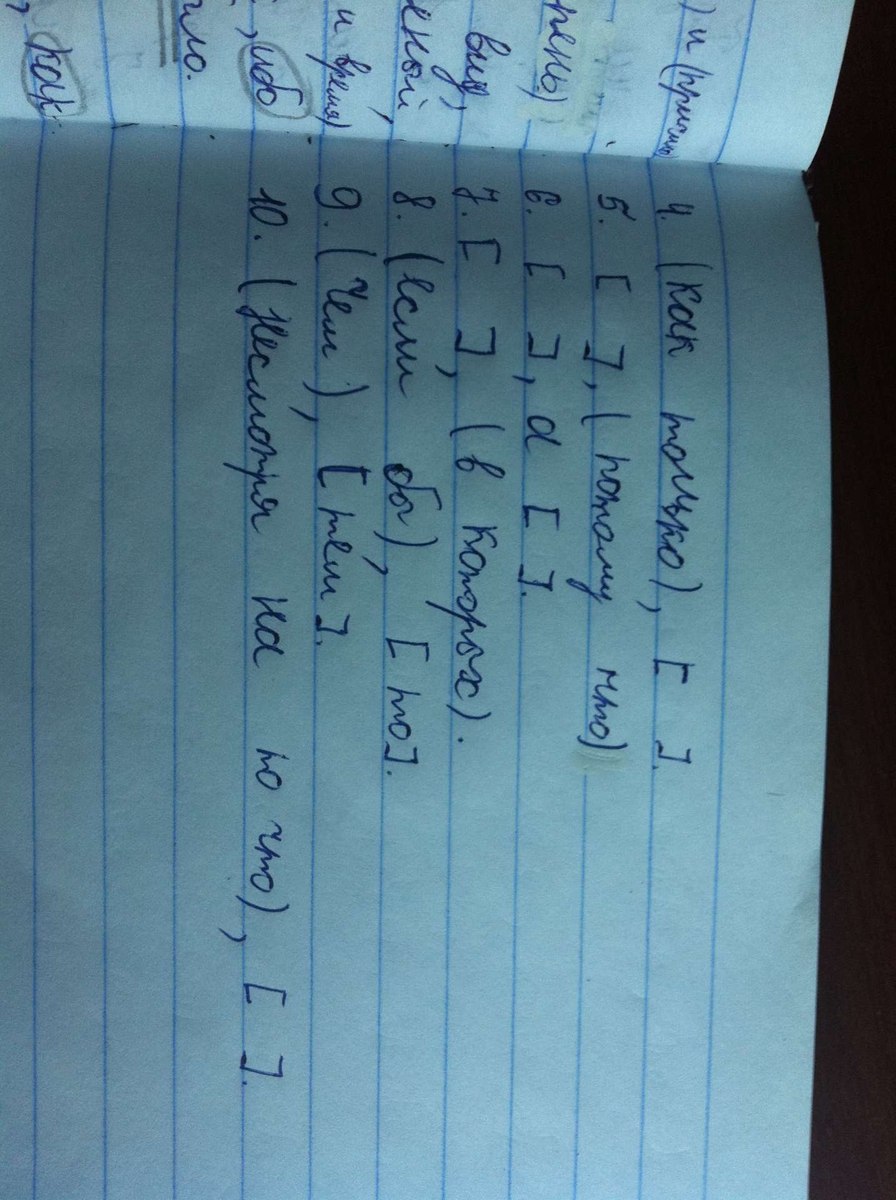 ) и (причины
рень)
вид,
еной,
и время)
, ибо
ило.
, как
4. (Как только), [ ].
5. [ ], (потому что)
6. [ ], а [ ].
7. [ ], (в которых).
8. (если бы), [то].
9. (Чем), [тем].
10. (Несмотря на то что), [ ].